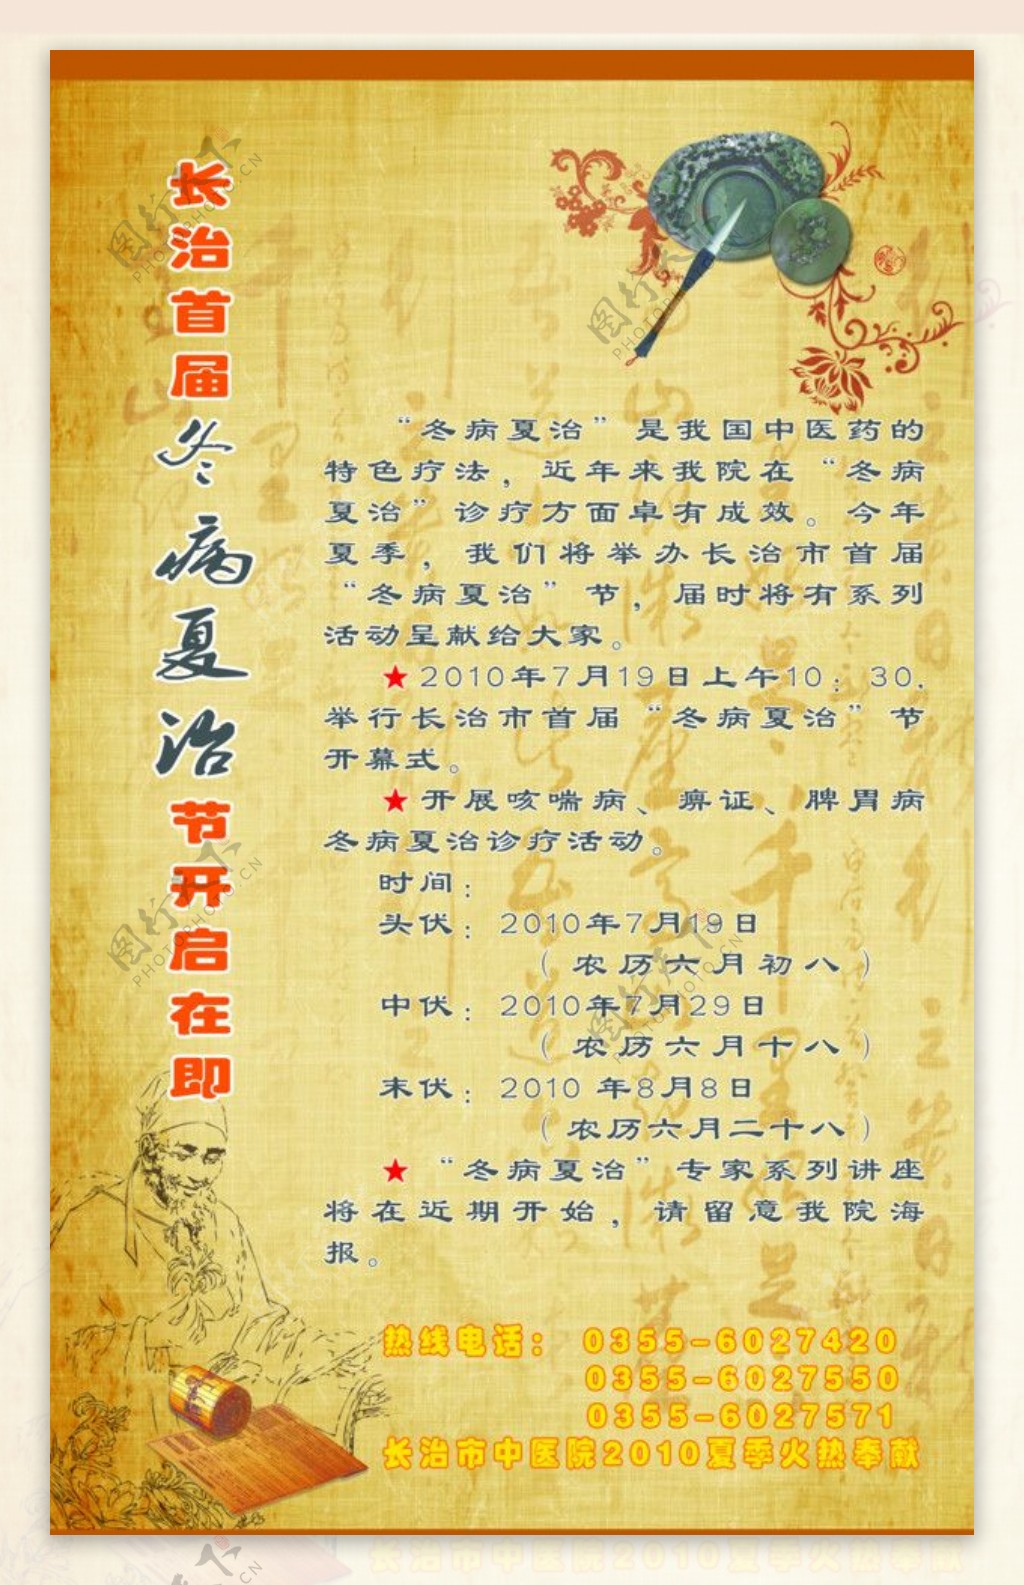 长治首届冬病夏治节开启在即
“冬病夏治”是我国中医药的
特色疗法，近年来我院在“冬病
夏治”诊疗方面卓有成效。今年
夏季，我们将举办长治市首届
“冬病夏治”节，届时将有系列
活动呈献给大家。
★2010年7月19日上午10：30，
举行长治市首届“冬病夏治”节
开幕式。
★开展咳喘病、痹证、脾胃病
冬病夏治诊疗活动。
时间：
头伏：2010年7月19日
（农历六月初八）
中伏：2010年7月29日
（农历六月十八）
末伏：2010 年8月8日
（农历六月二十八）
★“冬病夏治”专家系列讲座
将在近期开始，请留意我院海
报。
热线电话：0355-6027420
0355-6027550
0355-6027571
长治市中医院2010夏季火热奉献